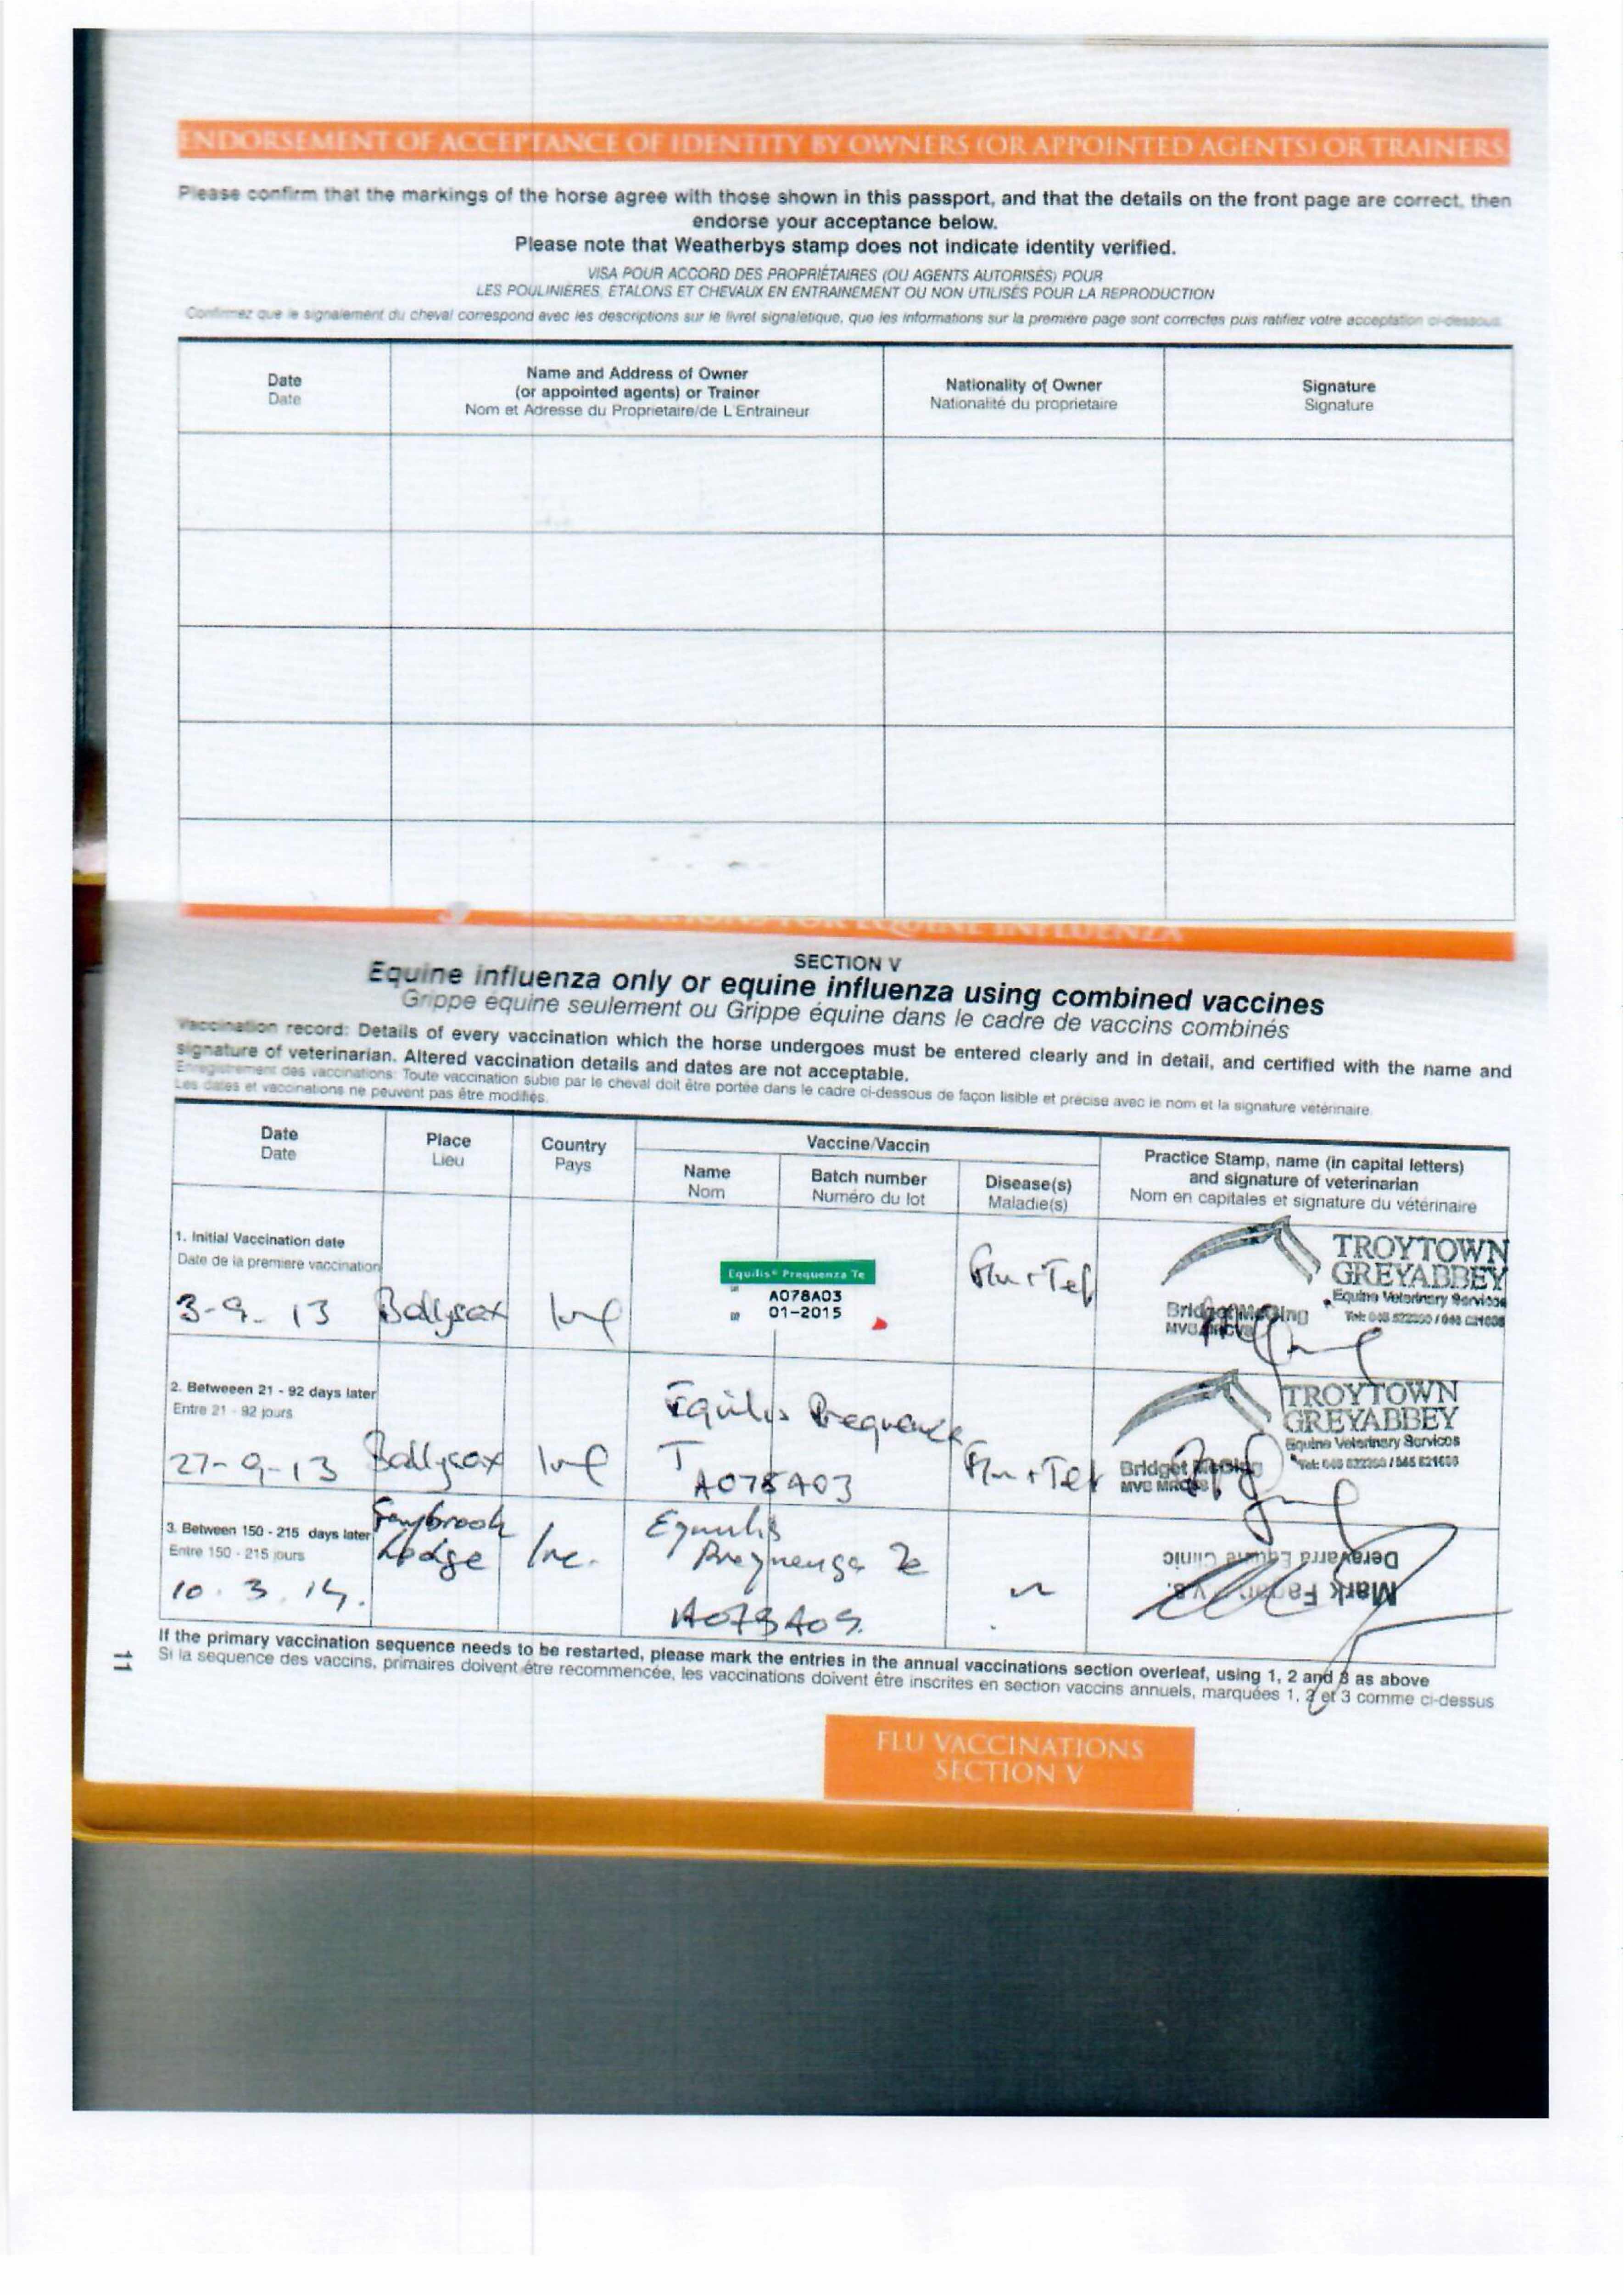 ENDORSEMENT OF ACCEPTANCE OF IDENTITY BY OWNERS (OR APPOINTED AGENTS) OR TRAINERS
Please confirm that the markings of the horse agree with those shown in this passport, and that the details on the front page are correct, then
endorse your acceptance below.
Please note that Weatherbys stamp does not indicate identity verified.
VISA POUR ACCORD DES PROPRIÉTAIRES (OU AGENTS AUTORISÉS) POUR
LES POULINIERES, ETALONS ET CHEVAUX EN ENTRAINEMENT OU NON UTILISÉS POUR LA REPRODUCTION
Confirmez que le signalement du cheval correspond avec les descriptions sur le livret signaletique, que les informations sur la premiere page sont correctes puis ratifiez votre acceptation ci-dessous.
Date
Date
Name and Address of Owner
(or appointed agents) or Trainer
Nom et Adresse du Proprietaire/de L'Entraineur
Nationality of Owner
Nationalité du proprietaire
Signature
Signature
FOR EQUINE INFLUENZA
SECTION V
Equine influenza only or equine influenza using combined vaccines
Grippe équine seulement ou Grippe équine dans le cadre de vaccins combinés
Vaccination record: Details of every vaccination which the horse undergoes must be entered clearly and in detail, and certified with the name and
signature of veterinarian. Altered vaccination details and dates are not acceptable.
Enregistrement des vaccinations: Toute vaccination subie par le cheval doit être portée dans le cadre ci-dessous de façon lisible et précise avec le nom et la signature vetérinaire.
Les dates et vaccinations ne peuvent pas être modifiés.
Date
Date
Place
Lieu
Country
Pays
Vaccine/Vaccin
Name
Nom
Batch number
Numéro du lot
Disease(s)
Maladie(s)
Practice Stamp, name (in capital letters)
and signature of veterinarian
Nom en capitales et signature du vétérinaire
1. Initial Vaccination date
Date de la premiere vaccination
3-9-13 Ballysax Irel
Equilis® Prequenza Te
A078A03
01-2015
Flu + Tet
TROYTOWN
GREYABBEY
Equine Veterinary Services
Bridget McGing
2. Betweeen 21 - 92 days later
Entre 21 - 92 jours
27-9-13 Ballysax Irel
Equilis Prequenza
T
A078A03
Flu + Tet
TROYTOWN
GREYABBEY
Equine Veterinary Services
Bridget McGing
MVB MRCVS
3. Between 150 - 215 days later
Entre 150 - 215 jours
10.3.14.
Lodge Ire.
Equilis
Prequenza Te
Deravarra Equine Clinic
Mark
If the primary vaccination sequence needs to be restarted, please mark the entries in the annual vaccinations section overleaf, using 1, 2 and 3 as above
Si la sequence des vaccins, primaires doivent être recommencée, les vaccinations doivent être inscrites en section vaccins annuels, marquées 1, 2 et 3 comme ci-dessus
11
FLU VACCINATIONS
SECTION V